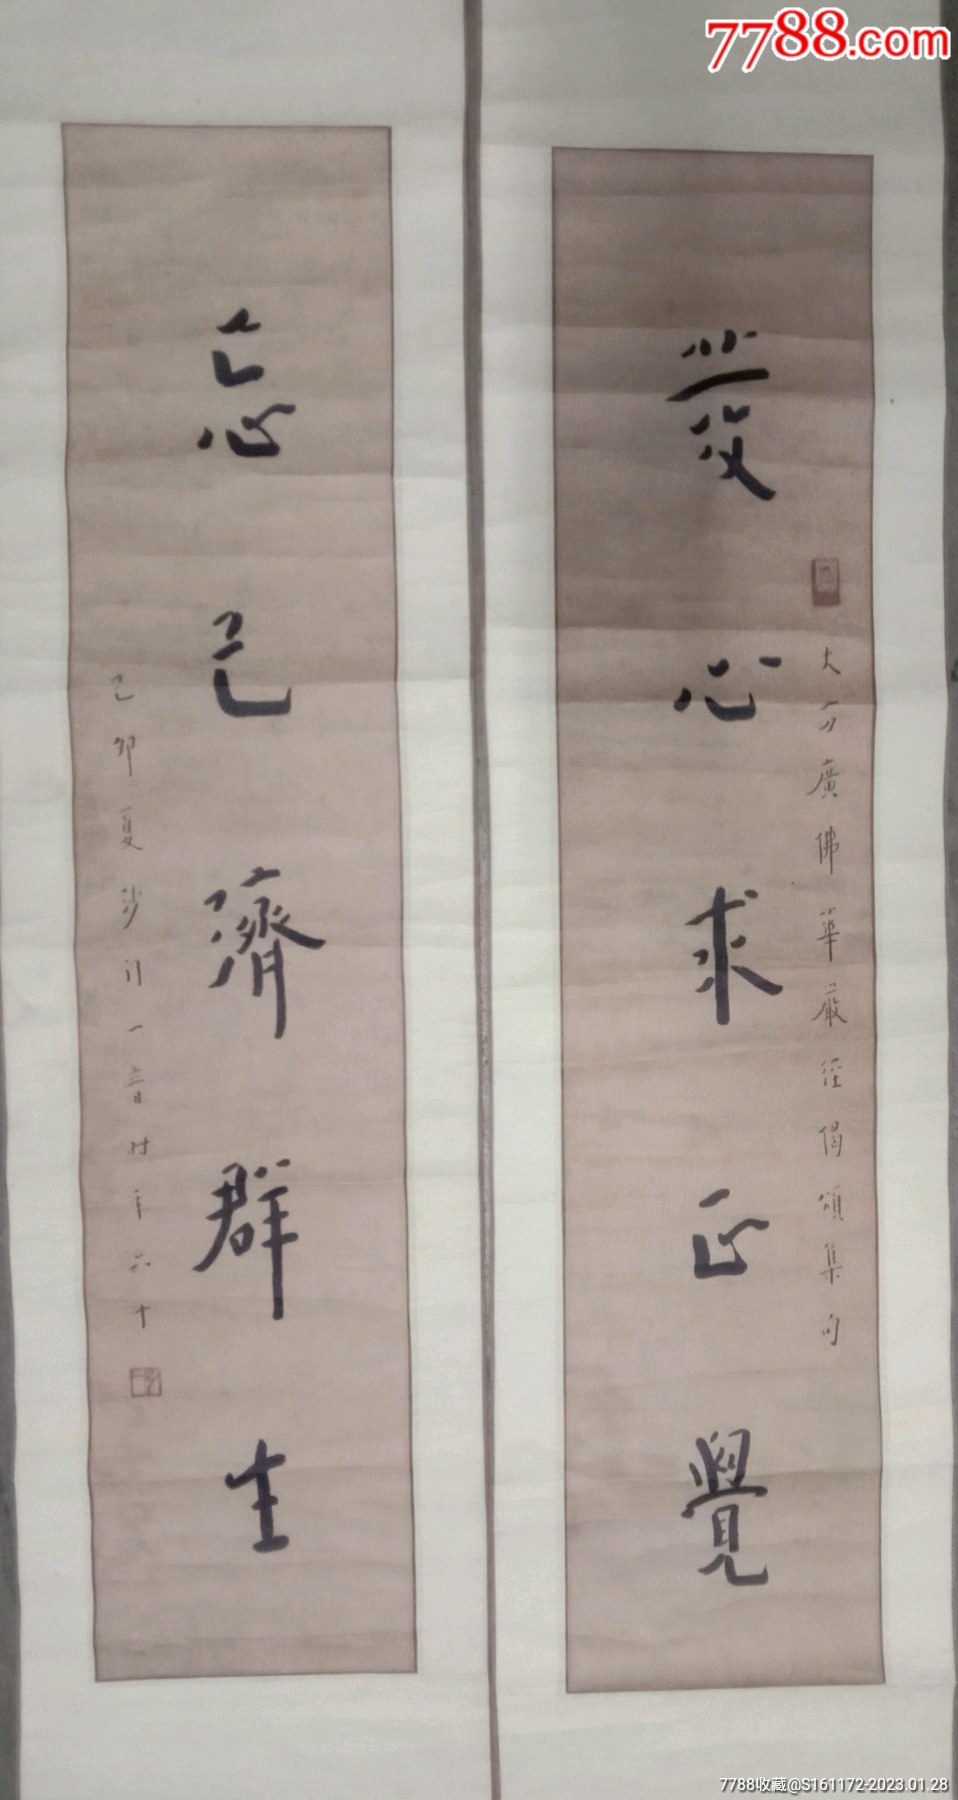 7788.com
發心求正覺
大方廣佛華嚴經偈頌集句
忘己濟群生
己卯夏沙門一音时年六十
7788收藏@S161172-2023.01.28